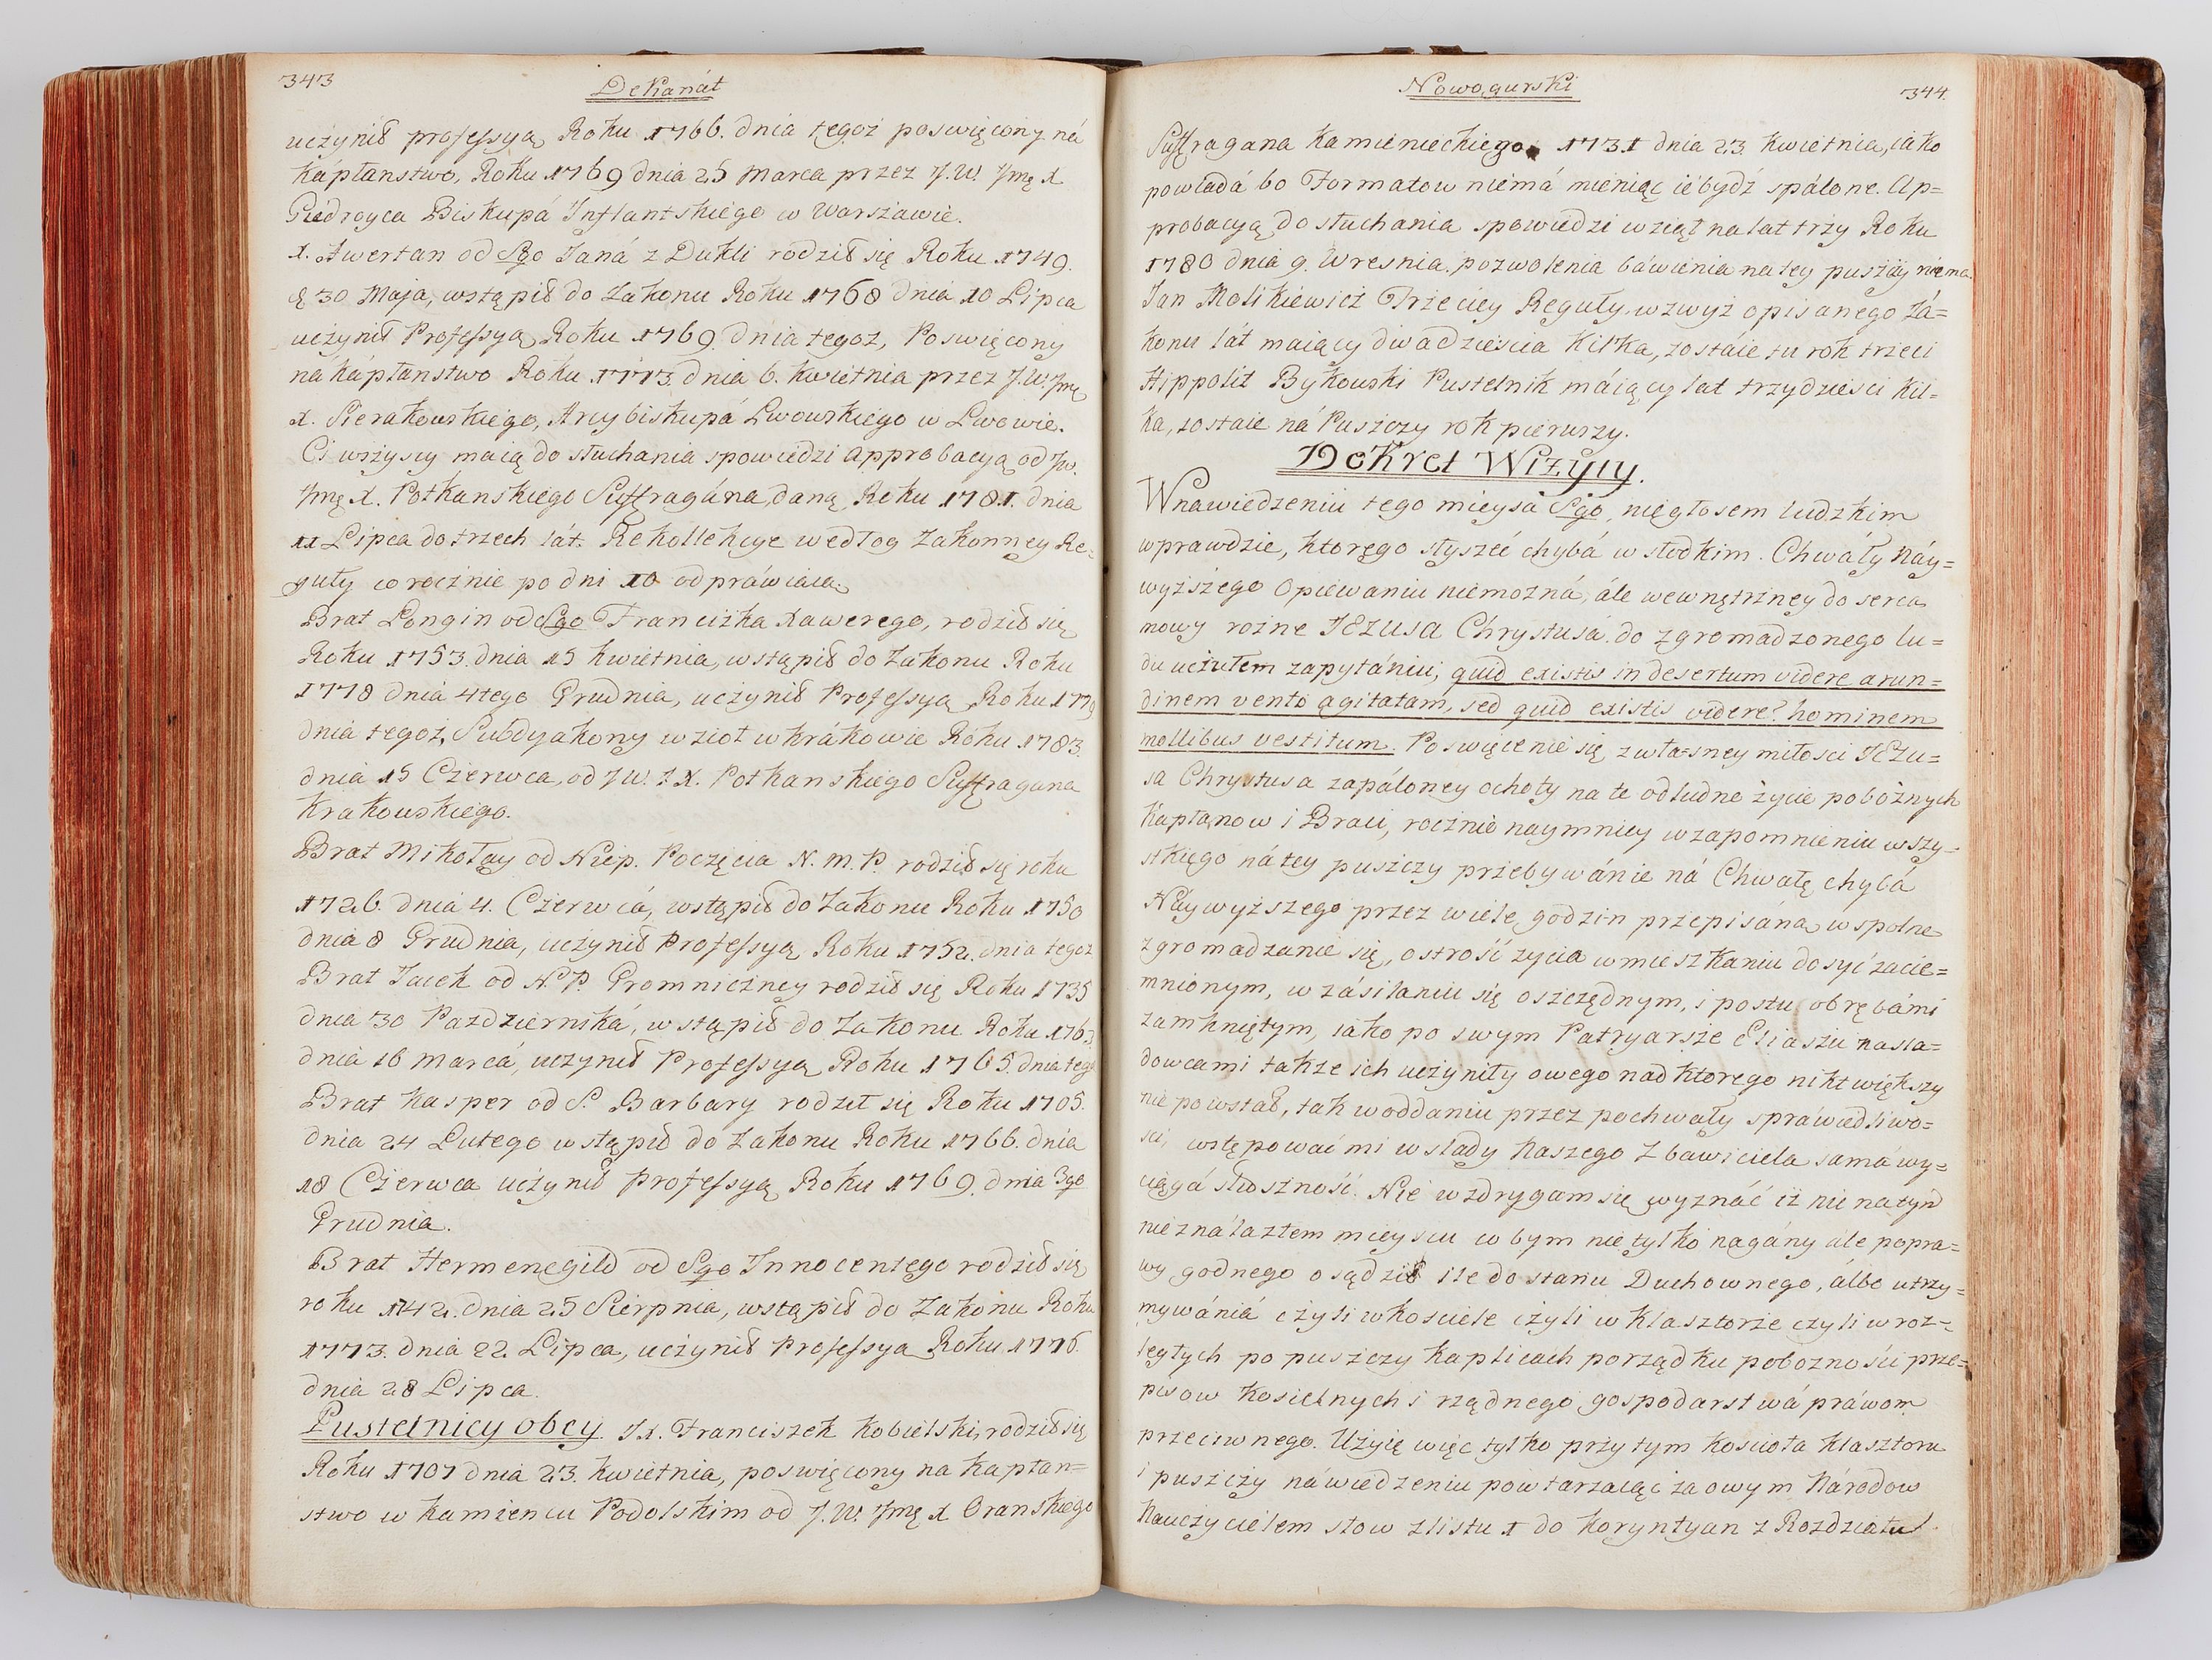 343
Dekanát
uczynił professyą Roku 1766. dnia tegoż poswięcony ná
kápłanstwo, Roku 1769 dnia 25 Marca przez J.W. Jmę X.
Giedroyca Biskupá Inflantskiego w Warszawie.
X. Awertan od Sgo Janá z Dukli rodził się Roku 1749.
d 30 Maja, wstąpił do Zakonu Roku 1768 dnia 10 Lipca
uczynił Professyą Roku 1769. dnia tegoż, Poswięcony
na kápłanstwo Roku 1773. dnia 6. kwietnia przez J.W. Jmę
X. Sierakowskiego, Arcybiskupá Lwowskiego w Lwowie.
Ci wszyscy maią do słuchania spowiedzi approbacyą od Jw.
Jmę X. Potkanskiego Suffragána, daną Roku 1781. dnia
11 Lipca do trzech lát. Rekollekcye według Zakonney Re=
guły corocznie po dni 10 odpráwiaią.
Brat Longin od Sgo Franciszka Xawerego, rodził się
Roku 1753. dnia 15 kwietnia, wstąpił do Zakonu Roku
1778 dnia 4tego Grudnia, uczynił Professyą Roku 1779
dnia tegoż, Subdyakony wzioł w krákowie Roku 1783.
dnia 15 Czerwca, od JW. J.X. Potkanskiego Suffragana
krakowskiego.
Brat Mikołay od Niep. Poczęcia N.M.P. rodził się roku
1726. dnia 4. Czerwcá, wstąpił do Zakonu Roku 1750
dnia 8 Grudnia, uczynił Professyą Roku 1752. dnia tegoż
Brat Jacek od N.P. Gromniczney rodził się Roku 1735
dnia 30 Pazdziernika, wstąpił do Zakonu Roku 176
dnia 16 Marcá, uczynił Professyą Roku 1765. dnia tego
Brat kasper od S. Barbary rodził się Roku 1705.
dnia 24 Lutego wstąpił do Zakonu Roku 1766. dnia
18 Czerwca uczynił professyą Roku 1769. dnia 3go
Grudnia.
Brat Hermenegild od Sgo Innocentego rodził się
roku 1742. dnia 25 Sierpnia, wstąpił do Zakonu Roku
1773. dnia 22 Lipca, uczynił Professya Roku 1776.
dnia 28 Lipca.
Pustelnicy obcy. JX. Franciszek kobielski, rodził się
Roku 1707 dnia 23. kwietnia, poswięcony na kapłan=
stwo w kamiencu Podolskim od J.W. Jmę X Oranskiego
Nowogurski
344.
Suffragana kamienieckiego 1731 dnia 23. kwietnia, iáko
powiadá bo Formatow niemá mieniąc ie bydź spálone. Ap=
probacyą do słuchania spowiedzi wziął na lat trzy Roku
1780 dnia 9. Wresnia. pozwolenia báwienia na tey puszczy niema.
Jan Molikiewicz Trzeciey Reguły, wzwyż opisanego Zá=
konu lát maiący dwadziescia kilka, zostáie tu rok trzeci
Hippolit Bykowski Pustelnik máiący lat trzydziesci kil=
ka, zostaie ná Puszczy rok pierwszy.
Dekret Wizyty.
W nawiedzeniu tego mieysa Sgo, nie głosem ludzkim
wprawdzie, ktorego słyszeć chybá w słodkim. Chwáły Náy=
wyższego Opiewaniu niemozná, ále wewnętrzney do serca
mowy rozne JEZUSA Chrystusá do zgromadzonego lu=
du uczułem zapytániu; quid existis in desertum videre arun=
dinem vento agitatam, sed quid existis videre? hominem
mollibus vestitum. Poswięcenie się z własney miłosci JEZU=
sa Chrystusa zapáloney ochoty na te odludne życie pobożnych
kapłanow i Braci, rocznie naymniey w zapomnieniu wszy=
stkiego ná tey puszczy przebywánie ná Chwałę chybá
Náywyższego przez wiele godzin przepisána, wspolne
zgromadzanie się, ostrość zycia w mieszkaniu dosyć zacie=
mnionym, w zásilaniu się oszczędnym, i postu obrębámi
zamkniętym, iáko po swym Patryarsze Eliaszu nasla=
dowcami także ich uczyniły owego nad ktorego nikt większy
nie powstał, tak w oddaniu przez pochwały spráwiedliwo=
sci, wstępować mi w slady Naszego Zbawiciela samá wy=
ciągá słuszność. Nie wzdrygam się wyznáć iż nic na tym
nieználazłem mieyscu co bym nie tylko nagány ále popra=
wy godnego osądził ile do stanu Duchownego, álbo utrzy=
mywániá czyli w kosciele czyli w klasztorze czyli w roz=
ległych po puszczy kaplicach porządku pobozności prze=
pisow kosielnych i rządnego gospodarstwá práwom
przeciwnego. Użyię więc tylko przy tym koscioła klasztoru
i puszczy náwiedzeniu powtarzaiąc za owym Národow
Nauczycielem słow z listu 1 do koryntyan z Rozdziału 1.